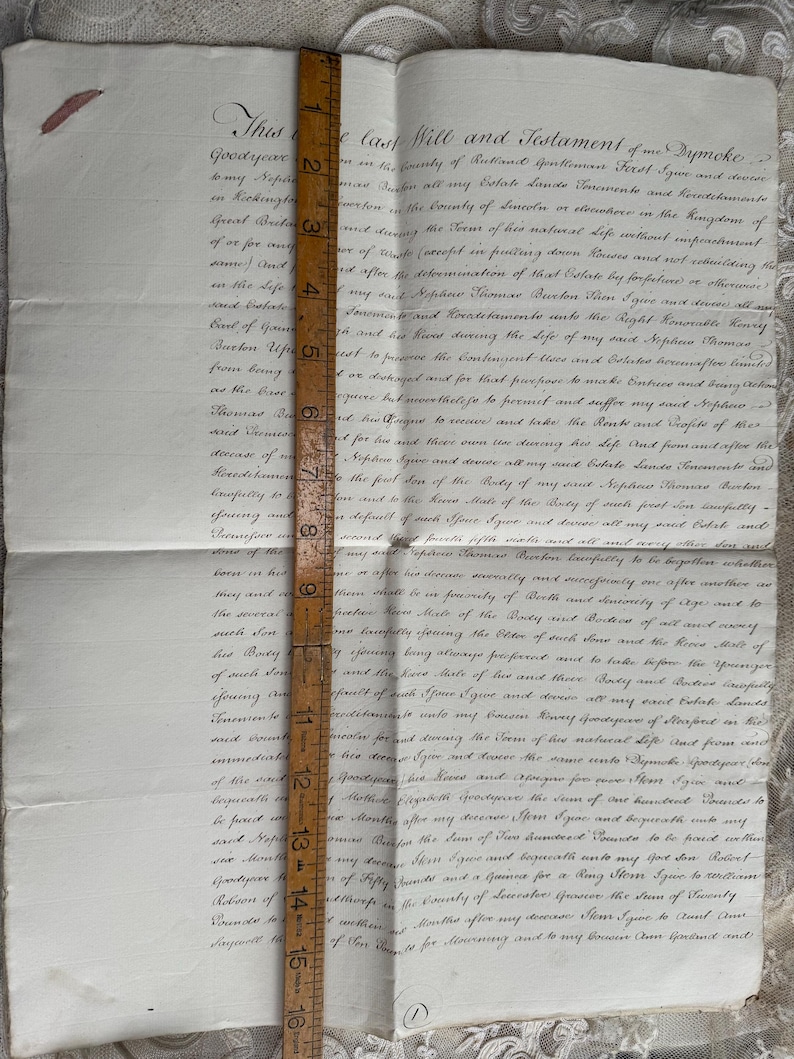 This the last Will and Testament of me Dymoke
Goodyear on in the County of Rutland Gentleman First I give and devise
to my Nephew Thomas Burton all my Estate Lands Tenements and Hereditaments
in Heckington verton in the County of Lincoln or elsewhere in the Kingdom of
Great Britain and during the Term of his natural Life without impeachment
of or for any ner of Waste (except in pulling down Houses and not rebuilding the
same) And nd after the determination of that Estate by forfeiture or otherwise
in the Life f my said Nephew Thomas Burton Then I give and devise all my
said Estate Tenements and Hereditaments unto the Right Honorable Henry
Earl of Gains gh and his Heirs during the Life of my said Nephew Thomas
Burton Upon ust to preserve the Contingent Uses and Estates hereinafter limited
from being d or destroyed and for that purpose to make Entries and bring Actions
as the Case require but nevertheless to permit and suffer my said Nephew
Thomas Bu nd his Assigns to receive and take the Rents and Profits of the
said Premises nd for his and there own Use during his Life And from and after the
decease of my Nephew I give and devise all my said Estate Lands Tenements and
Hereditaments to the first Son of the Body of my said Nephew Thomas Burton
lawfully to b ten and to the Heirs Male of the Body of such first Son lawfully
issuing and n default of such Issue I give and devise all my said Estate and
Premisses un second third fourth fifth sixth and all and every other Son and
Sons of the of my said Nephew Thomas Burton lawfully to be begotten whether
born in his me or after his decease severally and successively one after another as
they and ev them shall be in priority of Berth and Seniority of Age and to
the several a spective Heirs Male of the Body and Bodies of all and every
such Son a ons lawfully issuing the Elder of such Sons and the Heirs Male of
his Body y issuing being always preferred and to take before the Younger
of such Sons and the Heirs Male of his and their Body and Bodies lawfully
issuing And efault of such Issue I give and devise all my said Estate Lands
Tenements ereditaments unto my Cousin Henry Goodyear of Sleaford in the
said County incoln for and during the Term of his natural Life And from and
immediate r his decease I give and devise the same unto Dymoke Goodyear (Son
of the said y Goodyear) his Heirs and Assigns for ever Item I give and
bequeath u y Mother Elizabeth Goodyear the Sum of one hundred Pounds to
be paid w ix Months after my decease Item I give and bequeath unto my
said Neph omas Burton the Sum of Two hundred Pounds to be paid within
six Month my decease Item I give and bequeath unto my God Son Robert
Goodyear th m of Fifty Pounds and a Guinea for a Ring Item I give to William
Robson of ndthorp in the County of Leicester Grasier the Sum of Twenty
Pounds to within six Months after my decease Item I give to Aunt Ann
Saywell th of Ten Pounds for Mourning and to my Cousin Ann Garland and
1
1
2
3
4
5
6
7
8
9
11
12
13
14
15
16